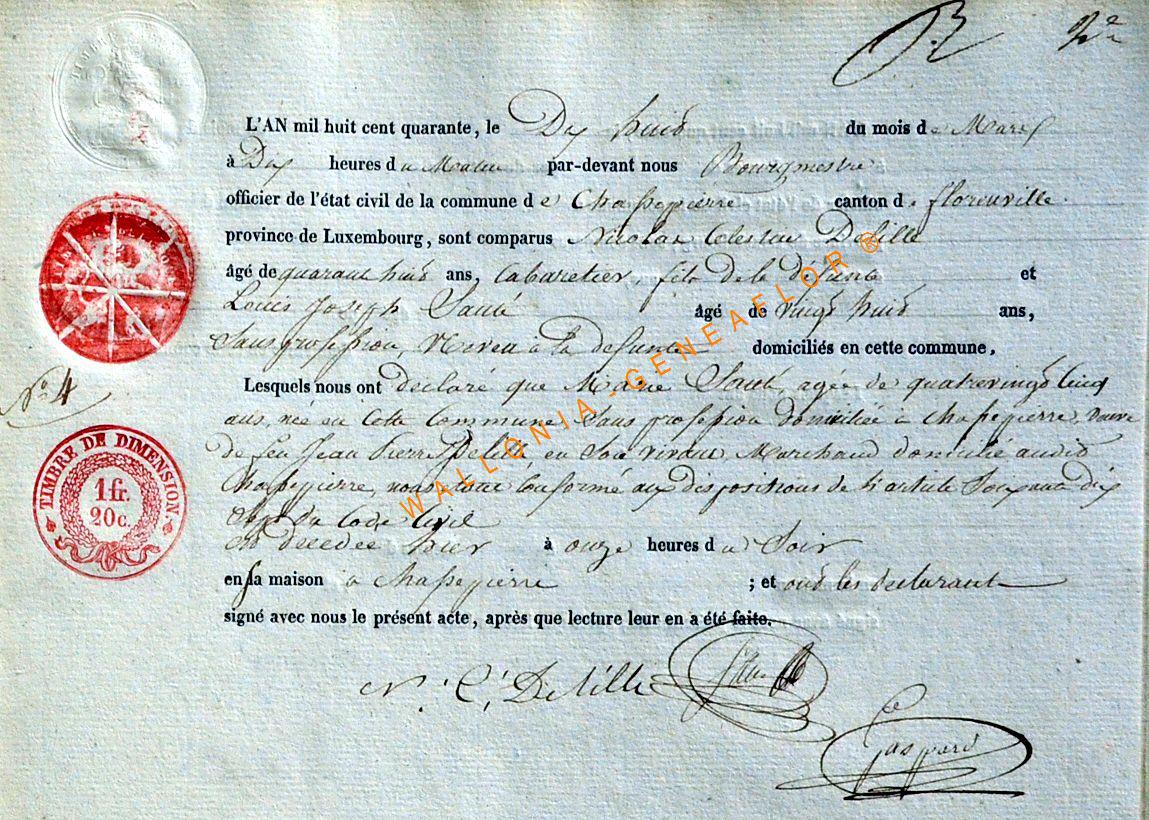 2e
L'AN mil huit cent quarante, le Dix huit du mois de Mars
à Dix heures du Matin par-devant nous Bourgmestre
officier de l'état civil de la commune de Chassepierre canton de florenville
province de Luxembourg, sont comparus Nicolas Celestin Delille
âgé de quarant huit ans, Cabaretier, fils de la défunte et
Louis Joseph Santé âgé de vingt huit ans,
Sans profession, Neveu à la defunte domiciliés en cette commune,
Lesquels nous ont declaré que Marie Santé, agée de quatrevingt Cinq
ans, née en Cette Commune, Sans profession domiciliée à Chassepierre, veuve
de feu Jean Pierre Delille, en Son vivant Marchand domicilié audit
Chassepierre, conformé aux dispositions de l'article Soixante dix
Sept du Code Civil
est decedée hier à onze heures du Soir
en sa maison à Chassepierre ; et ont les declarant
signé avec nous le présent acte, après que lecture leur en a été faite.
N. C. Delille
Gaspard
No 4
TIMBRE DE DIMENSION
1 fr.
20 c.
WALLONIA-GENEAFLOR ®